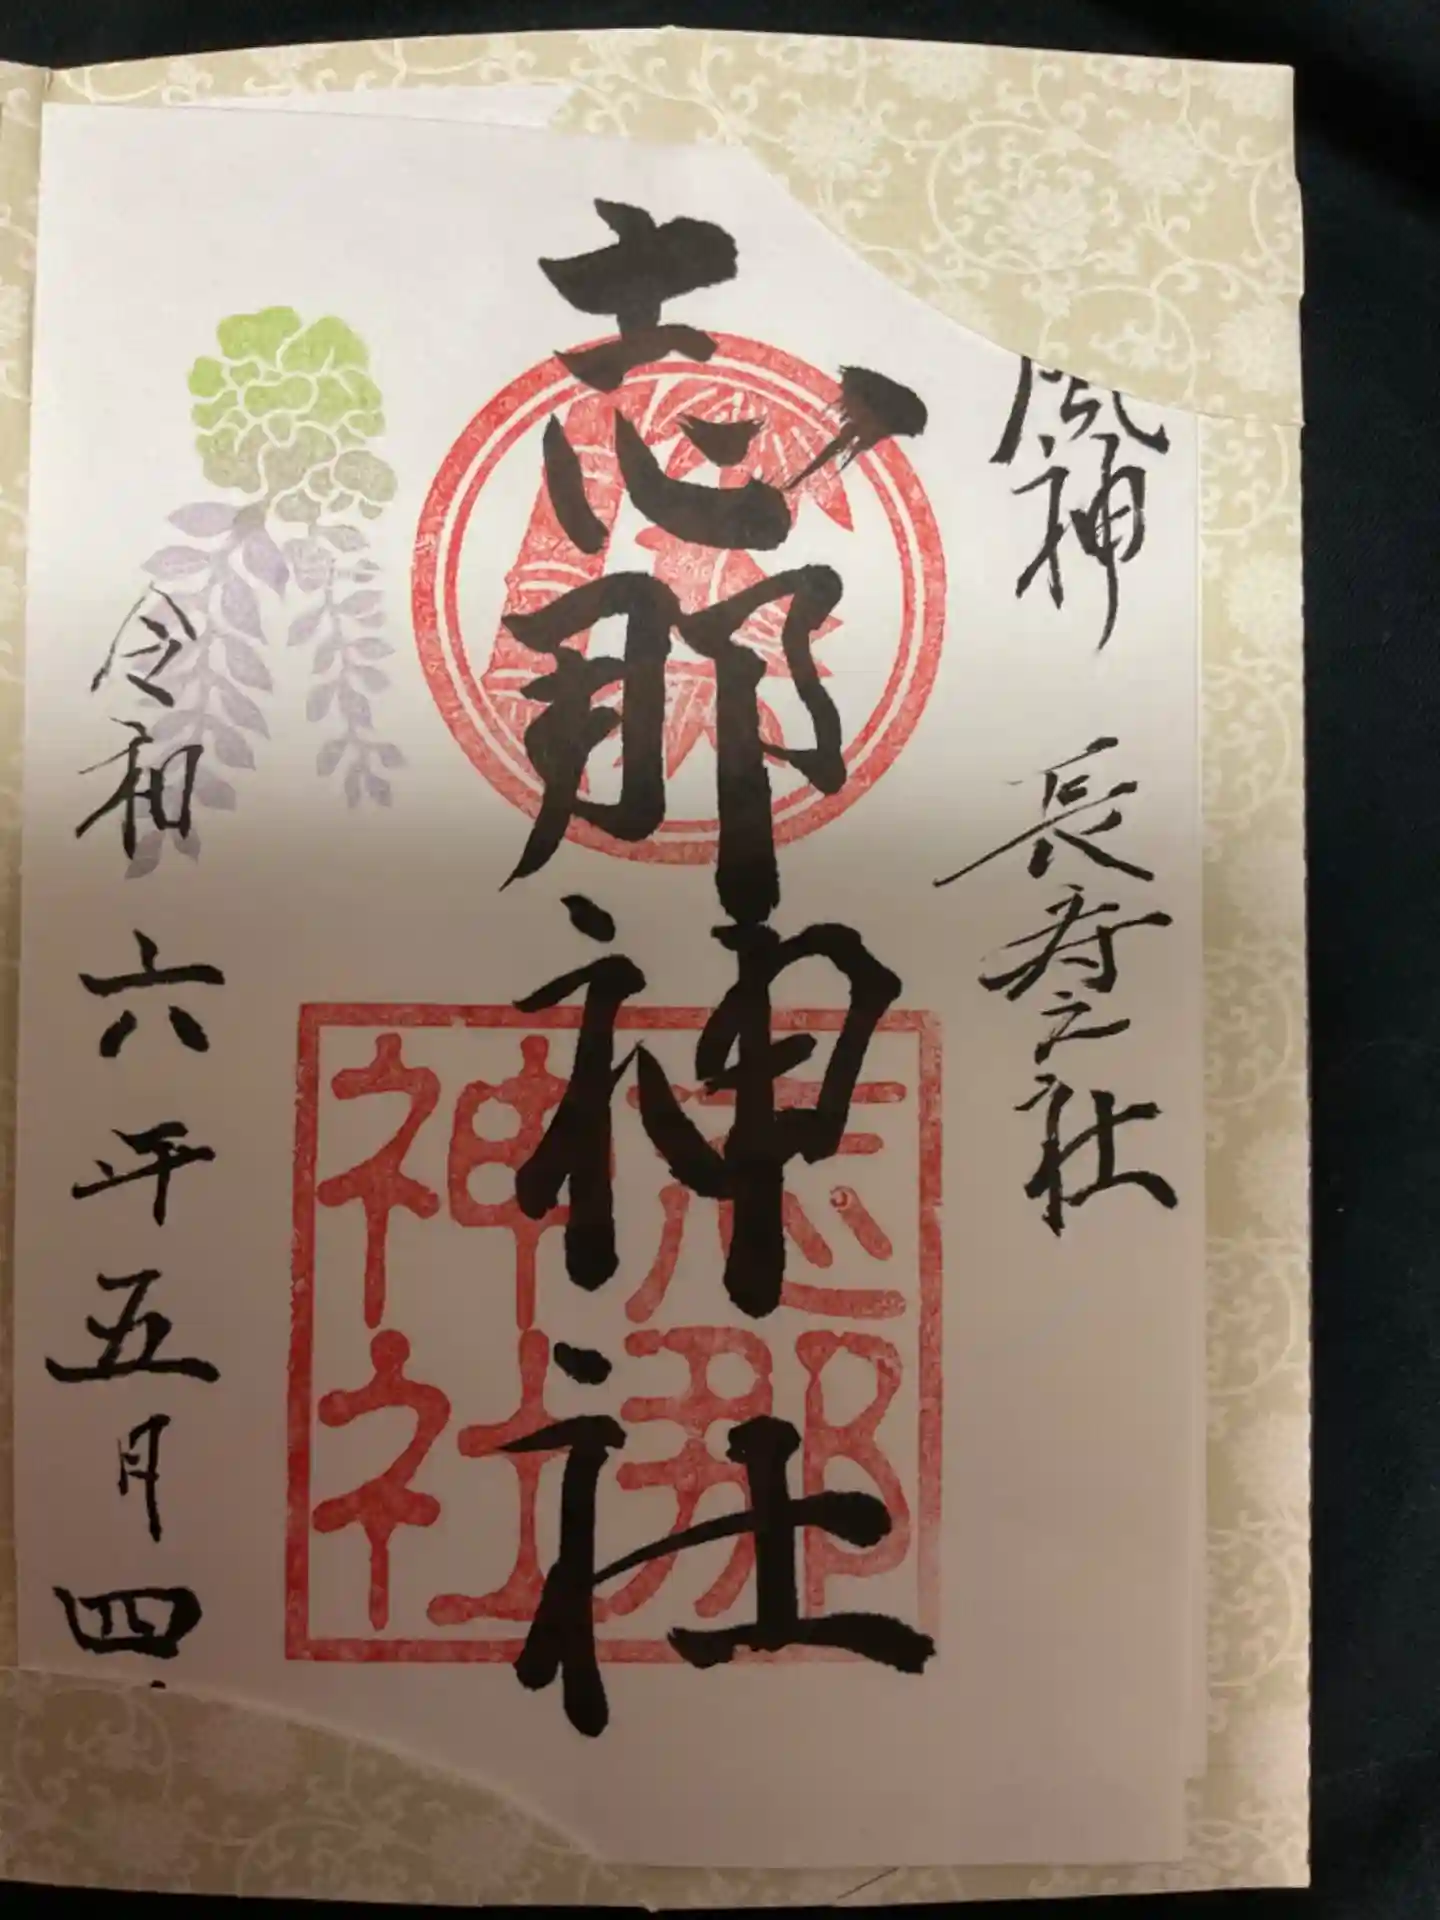 風神 長寿之社
志那神社
志那神社
令和六年五月四